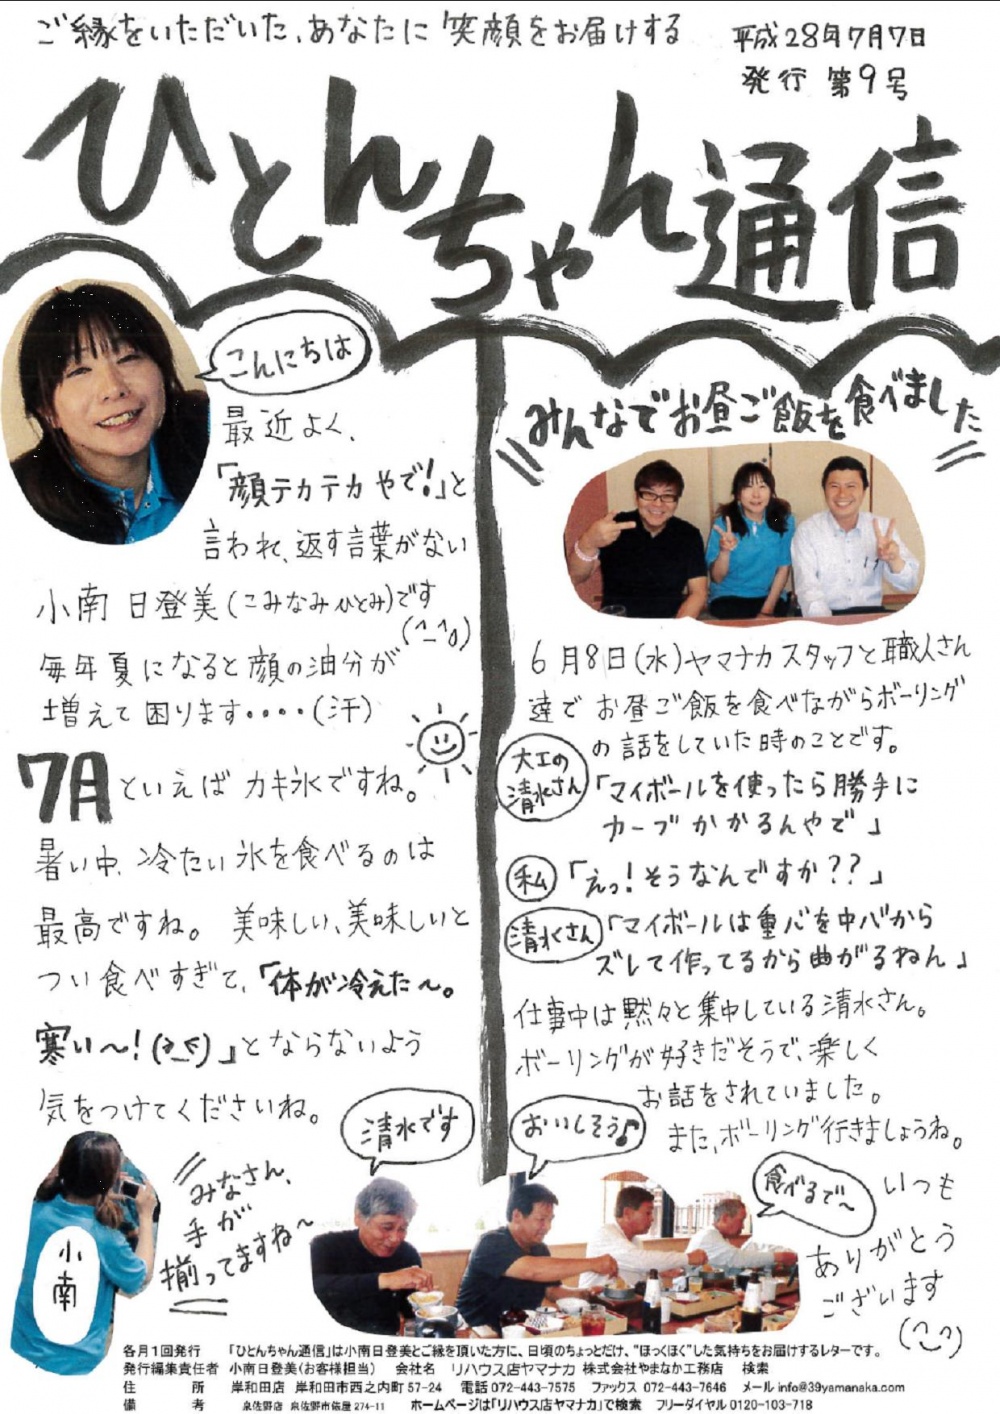 ご縁をいただいた、あなたに笑顔をお届けする
平成28年7月7日
発行 第9号
ひとんちゃん通信
こんにちは
最近よく、
「顔テカテカやで!」と
言われて、返す言葉がない
小南 日登美(こみなみひとみ)です
(^-^o)
毎年夏になると顔の油分が
増えて困ります・・・・(汗)
7月といえばカキ氷ですね。
暑い中、冷たい氷を食べるのは
最高ですね。 美味しい、美味しいと
つい食べすぎて、「体が冷えた〜。
寒い〜!(>_<)」とならないよう
気をつけてくださいね。
小南
みなさん、
手が
揃ってますね〜
みんなでお昼ご飯を食べました
6月8日(水)ヤマナカスタッフと職人さん
達でお昼ご飯を食べながらボーリング
の話をしていた時のことです。
大工の
清水さん
「マイボールを使ったら勝手に
カーブかかるんやで」
私
「えっ!そうなんですか??」
清水さん
「マイボールは重心を中心から
ズレて作ってるから曲がるねん」
仕事中は黙々と集中している清水さん。
ボーリングが好きだそうで、楽しく
お話をされていました。
また、ボーリング行きましょうね。
清水です
おいしそう♪
食べるで〜
いつも
ありがとう
ございます
(^-^)
各月1回発行 「ひとんちゃん通信」は小南日登美とご縁を頂いた方に、日頃のちょっとだけ、"ほっくほく"した気持ちをお届けするレターです。
発行編集責任者 小南日登美(お客様担当) 会社名 リハウス店ヤマナカ 株式会社やまなか工務店 検索
住 所 岸和田店 岸和田市西之内町57-24 電話072-443-7575 ファックス 072-443-7646 メールinfo@39yamanaka.com
備 考 泉佐野店 泉佐野市俵屋274-11 ホームページは「リハウス店ヤマナカ」で検索 フリーダイヤル0120-103-718